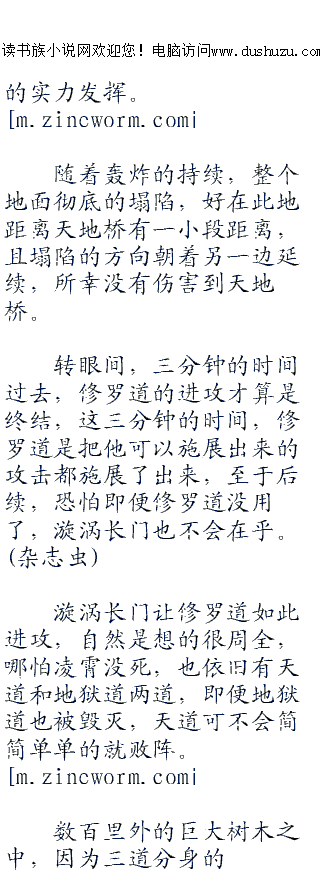 读书族小说网欢迎您！电脑访问www.dushuzu.com
的实力发挥。
[m.zincworm.com]
随着轰炸的持续，整个
地面彻底的塌陷，好在此地
距离天地桥有一小段距离，
且塌陷的方向朝着另一边延
续，所幸没有伤害到天地
桥。
转眼间，三分钟的时间
过去，修罗道的进攻才算是
终结，这三分钟的时间，修
罗道是把他可以施展出来的
攻击都施展了出来，至于后
续，恐怕即便修罗道没用
了，漩涡长门也不会在乎。
(杂志虫)
漩涡长门让修罗道如此
进攻，自然是想的很周全，
哪怕凌霄没死，也依旧有天
道和地狱道两道，即便地狱
道也被毁灭，天道可不会简
简单单的就败阵。
[m.zincworm.com]
数百里外的巨大树木之
中，因为三道分身的